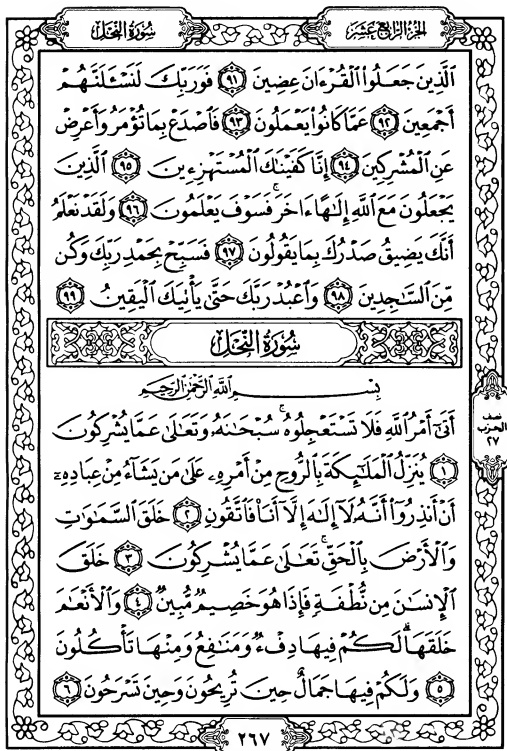 الجزء الرابع عشر
سورة النحل
ٱلَّذِينَ جَعَلُوا۟ ٱلْقُرْءَانَ عِضِينَ ٩١ فَوَرَبِّكَ لَنَسْـَٔلَنَّهُمْ
أَجْمَعِينَ ٩٢ عَمَّا كَانُوا۟ يَعْمَلُونَ ٩٣ فَٱصْدَعْ بِمَا تُؤْمَرُ وَأَعْرِضْ
عَنِ ٱلْمُشْرِكِينَ ٩٤ إِنَّا كَفَيْنَـٰكَ ٱلْمُسْتَهْزِءِينَ ٩٥ ٱلَّذِينَ
يَجْعَلُونَ مَعَ ٱللَّهِ إِلَـٰهًا ءَاخَرَ ۚ فَسَوْفَ يَعْلَمُونَ ٩٦ وَلَقَدْ نَعْلَمُ
أَنَّكَ يَضِيقُ صَدْرُكَ بِمَا يَقُولُونَ ٩٧ فَسَبِّحْ بِحَمْدِ رَبِّكَ وَكُن
مِّنَ ٱلسَّـٰجِدِينَ ٩٨ وَٱعْبُدْ رَبَّكَ حَتَّىٰ يَأْتِيَكَ ٱلْيَقِينُ ٩٩
سورة النحل
بِسْمِ ٱللَّهِ ٱلرَّحْمَـٰنِ ٱلرَّحِيمِ
أَتَىٰٓ أَمْرُ ٱللَّهِ فَلَا تَسْتَعْجِلُوهُ ۚ سُبْحَـٰنَهُۥ وَتَعَـٰلَىٰ عَمَّا يُشْرِكُونَ
١ يُنَزِّلُ ٱلْمَلَـٰٓئِكَةَ بِٱلرُّوحِ مِنْ أَمْرِهِۦ عَلَىٰ مَن يَشَآءُ مِنْ عِبَادِهِۦٓ
أَنْ أَنذِرُوٓا۟ أَنَّهُۥ لَآ إِلَـٰهَ إِلَّآ أَنَا۠ فَٱتَّقُونِ ٢ خَلَقَ ٱلسَّمَـٰوَٰتِ
وَٱلْأَرْضَ بِٱلْحَقِّ ۚ تَعَـٰلَىٰ عَمَّا يُشْرِكُونَ ٣ خَلَقَ
ٱلْإِنسَـٰنَ مِن نُّطْفَةٍ فَإِذَا هُوَ خَصِيمٌ مُّبِينٌ ٤ وَٱلْأَنْعَـٰمَ
خَلَقَهَا ۗ لَكُمْ فِيهَا دِفْءٌ وَمَنَـٰفِعُ وَمِنْهَا تَأْكُلُونَ
٥ وَلَكُمْ فِيهَا جَمَالٌ حِينَ تُرِيحُونَ وَحِينَ تَسْرَحُونَ ٦
نصف
الحزب
٢٧
٢٦٧